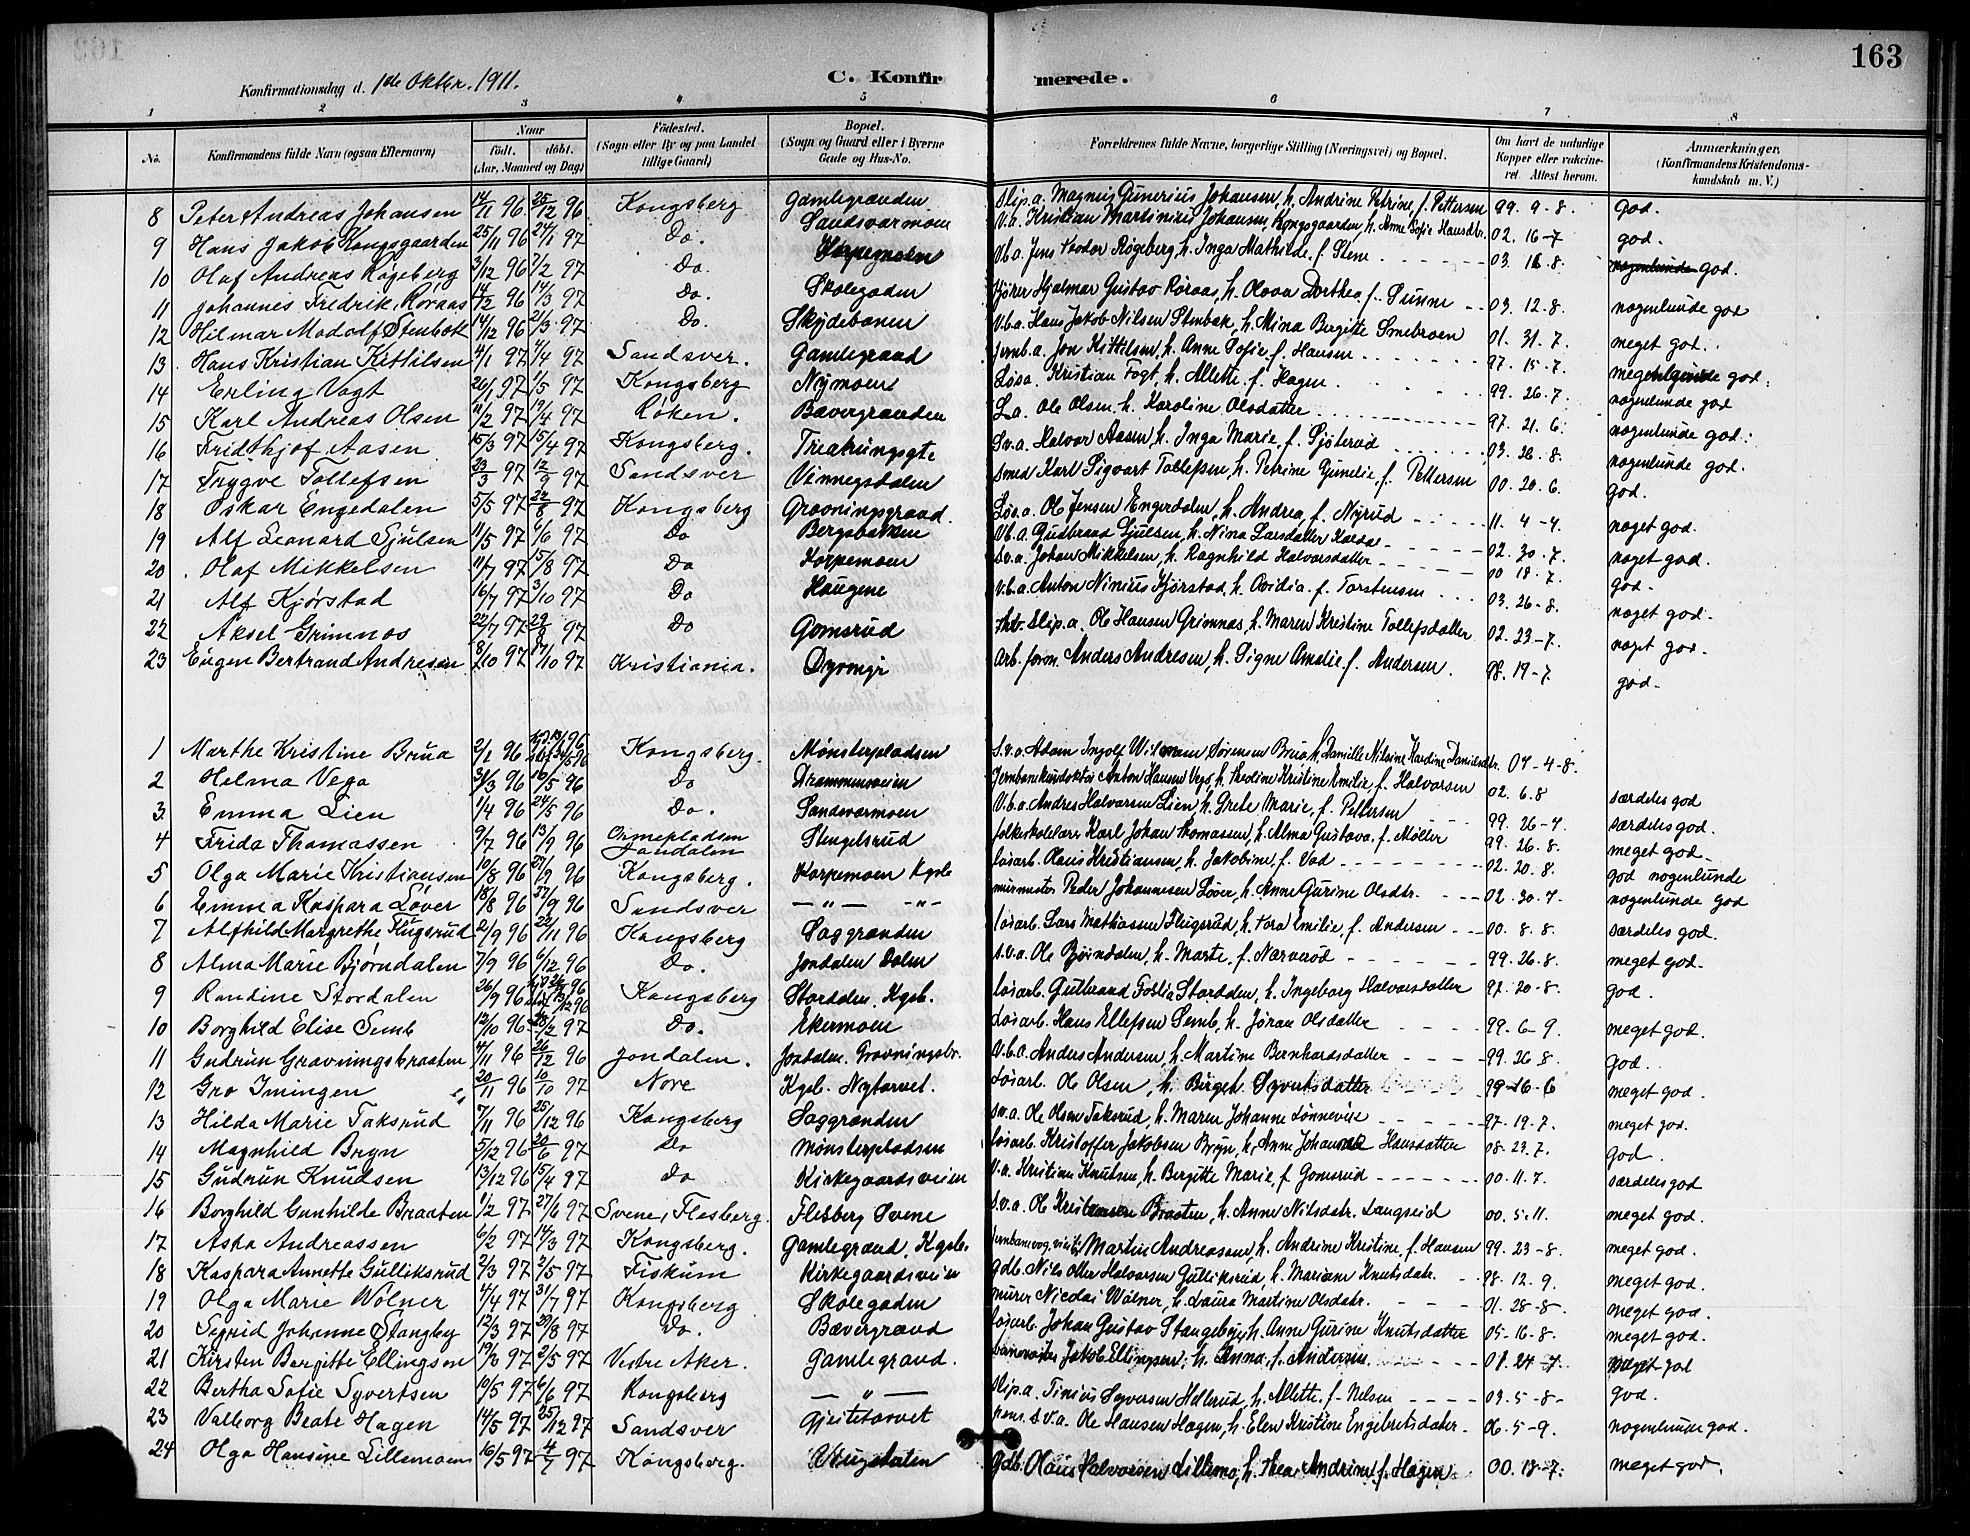 163
Konfirmationsdag d. 1ste Oktbr. 1911.
C. Konfirmerede.
1 2 3 4 5 6 7 8
No. Konfirmandens fulde Navn (ogsaa Efternavn) Naar født. døbt. (Aar, Maaned og Dag) Fødested. (Sogn eller By og paa Landet tillige Gaard) Bopæl. (Sogn og Gaard eller i Byerne Gade og Hus-No. Forældrenes fulde Navne, borgerlige Stilling (Næringsvei) og Bopæl. Om havt de naturlige Kopper eller vaccineret Attest herom. Anmærkninger. (Konfirmandens Kristendomskundskab m. V.)
8 Peter Andreas Johansen 14/11 96 25/12 96 Kongsberg Gamlegranden Slip.a. Magnus Gunerius Johansen, h. Andrine Petrine, f. Pettersen 99. 9-8. god.
9 Hans Jakob Kongsgaarden 25/11 96 24/1 97 Do. Sandsvarmoen V.a. Kristian Martinius Johansen Kongsgaarden, h. Anne Sofie Hansdtr. 02. 16-7 god.
10 Olaf Andreas Røgeberg 3/12 96 7/2 97 Do. Korpemoen V.b.a. Jens Teodor Røgeberg, h. Inga Mathilde, f. Stene 03. 18.8. nogenlunde god.
11 Johannes Fredrik Roraas 14/12 96 14/3 97 Do. Skolegaden Kjører Hjalmar Gustav Roraas, h. Olava Dorthea f. Sunne 03. 12.8. nogenlunde god
12 Hilmar Modolf Stenbok 14/12 96 21/3 97 Do. Skydebanen V.b.a. Hans Jakob Nilsen Stenbak, h. Mina Bergitte Smebraaen 01. 31.7. meget god.
13 Hans Kristian Kittilsen 4/1 97 4/4 97 Sandsver. Gamlegraad Jernb.a. Jon Kittilsen, h. Anne Sofie, f. Hansen 97. 15.7. meget god.
14 Erling Vogt 26/1 97 1/5 97 Kongsberg Nymoens Løsa. Kristian Fogt, h. Allette f. Hagen 99. 26.7. nogenlunde god
15 Karl Andreas Olsen 11/2 97 19/4 97 Røken. Bævergranden L.a. Ole Olsen h. Karoline Olsdatter 97. 21.6. nogenlunde god.
16 Fridthjof Aasen 15/3 97 15/4 97 Kongsberg. Treatningsgt. S.v.a. Halvor Aasen, h. Inga Marie, f. Sjøterud 03. 26.8. nogenlunde god.
17 Trygve Tollefsen 23/3 97 12/9 97 Sandsver Vinnegsdalen Smed Karl Sigvart Tollefsen, h. Petrine Gunelie, f. Pettersen 00. 20.6. god.
18 Oskar Engedalen 5/5 97 22/8 97 Kongsberg Gravningsgraad. Løs.a. Ole Jensen Engerdalen, h. Andrea, f. Nyrud 11. 4-4. noget god.
19 Alf Leonard Gjulsen 11/5 97 6/6 97 Do Bergsbakken V.b.a. Gudbrand Gjulsen, h. Nina Larsdatter 02. 30.7. noget god.
20 Olaf Mikkelsen 11/7 97 15/8 97 Do Korpemoen S.v.a. Johan Mikkelsen, h. Ragnhild Halvorsdatter 00 18.7. god.
21 Alf Kjørstad 16/7 97 3/10 97 Do Haugene V.b.a. Anton Ninius Kjørstad, h. Ovidia f. Torstensen 03. 26-8. noget god.
22 Aksel Grimnos 22/7 97 29/8 97 Do Gomsrud Slip.a. Ole Hansen Grimnæs, h. Maren Kristine Tollefsdatter 02. 23-7. noget god.
23 Eugen Bertrand Andresen 8/10 97 17/10 97 Kristiania. Dyrmyr Arb. form. Anders Andresen, h. Signe Amalie, f. Andersen. 98. 19-7. god.
1 Marthe Kristine Brua 2/1 96 Kongsberg. Mønsterpladsen S.v.a. Adam Ingolf Wilmann Sørensen Brua, h. Pernille Nilsine Kardine Danielsdtr. 07-4-8.
2 Helma Vega 31/3 96 10/5 96 Do Drammensveien Jernbanekonduktør Anton Hansen Vego, h. Theoline Kristine Emilie, f. Halvorsen 02. 6.8 særdeles god
3. Emma Lien 1/4 96 24/5 96 Do. Sandsvarmoen V.b.a. Andres Halvorsen Lien, h. Grete Marie, f. Pettersen 99. 26-7. særdeles god.
4 Frida Thomassen 9/7 96 13/9 96 Ormepladsen Jondalen Stengelsrud Folkeskolelærer Karl Johan Thomassen, h. Alma Gustava, f. Møller 99. 26.8. meget god.
5 Olga Marie Kristiansen 10/8 96 27/9 96 Kongsberg. Korpemoen Kgsb. Løsarb. Olaus Kristiansen, h. Jakobine, f. Vad 02. 20.8. god nogenlunde
6 Emma Kaspara Løver 18/8 96 27/9 96 Sandsver — " — -"- murmester Peder Johannesen Løver, h. Anne Gurine Olsdtr. 02. 30.7. nogenlunde god
7 Alfhild Margrethe Flugsrud 21/9 96 22/11 96 Kongsberg Saggrenden Løsarb. Lars Mathiassen Flugsrud, h. Tora Emilie, f. Andersen 00. 8.8. særdeles god.
8 Alma Marie Bjørndalen 7/9 96 6/12 96 Do. Jondalen Dalen S.v.a. Ole Bjørndalen, h. Marte, f. Narverud 99. 26.8. meget god.
9 Randine Stordalen 26/9 96 Kongsberg Stordalen, Kgsb. Løsarb. Gulbrand Foslia Stordalen, h. Ingeborg Halvorsdatter 97. 20-8. god.
10 Borghild Elise Semb 12/10 96 28/2 97 Do. Ekermoen Løsarb. Hans Ellefsen Semb, h. Jøran Olsdatter 99.-6-9. meget god.
11 Gudrun Gravningsbraaten 4/11 96 26/12 96 Jondalen. Jondalen. Gravningsbr. V.b.a. Anders Andersen, h. Martine Bernhardsdatter 99. 26.8. god.
12 Gro Imingen 20/11 96 10/10 97 Nore Kgsb. Nytorvet. Løsarb. Ole Olsen, h. Birget Syvertsdatter 99-16-6 meget god.
13 Hilda Marie Taksrud 7/11 96 25/12 96 Kongsberg Saggrenden S.v.a. Ole Olsen Taksrud, h. Maren Johanne Lønnevise 97. 19.7. meget god.
14 Magnhild Bryn 5/12 96 20/6 97 Do Mønsterpladsen Løsarb. Kristoffer Jakobsen Bryn, h. Anne Johanne Hansdatter 08. 23.7. god.
15 Gudrun Knudsen 13/12 96 15/4 97 Do Kirkegaardsveien V.a. Kristian Knutsen, h. Bergitte Marie, f. Gomsrud 00. 11.7. særdeles god
16 Borghild Gunhilde Braaten 1/2 97 27/6 97 Svene, Flesberg. Flesberg Svene S.v.a. Ole Kristensen Braaten, h. Anne Nilsdatr. Langseid 00. 5.11. meget god.
17 Asta Andreassen 6/2 97 14/3 97 Kongsberg. Gamlegrand, Kgsb. Martin Andreassen, h. Andrine Kristine, f. Hansen 99. 23-8. meget god.
18 Kaspara Annette Gulliksrud 2/3 97 2/5 97 Fiskum Kirkegaardsveien Gdb. Nils Otter Halvorsen Gulliksrud, h. Mariane Knutsdatr. 98. 12.9. meget god.
19 Olga Marie Wølner 4/4 97 31/7 97 Kongsberg Skolegaden murer Nicolai Wølner, h. Laura Martine Olsdatr. 01. 28-8- meget god.
20 Sigrid Johanne Stangeby 12/3 97 29/8 97 Do. Bævergrand Løsarb. Johan Gustav Stangeby, h. Anne Gurine Knutsdatter 05-16-8. meget god.
21 Kirsten Bergitte Ellingsen 19/3 97 2/5 97 Vestre Aker. Gamlegrand. Banevokter Jakob Ellingsen, h. Anna, f. Andersen 01. 24-7. meget god
22 Bertha Sofie Syvertsen 10/5 97 6/6 97 Kongsberg — " — Slip.a. Tinius Syversen Hellerud, h. Allette, f. Nelsen 03. 5-8- god.
23 Valborg Beate Hagen 14/5 97 25/12 97 Sandsver Gjeitetorvet pens. S.v.a. Ole Hansen Hagen, h. Elen Kristine Engebretsdatter 06. 5-9. nogenlunde god.
24 Olga Hansine Lillemoen 16/5 97 4/7 97 Kongsberg. Gdb. Olaus Halvorsen Lillemo, h. Thea Andrine f. Hagen 00. 18-7. meget god.